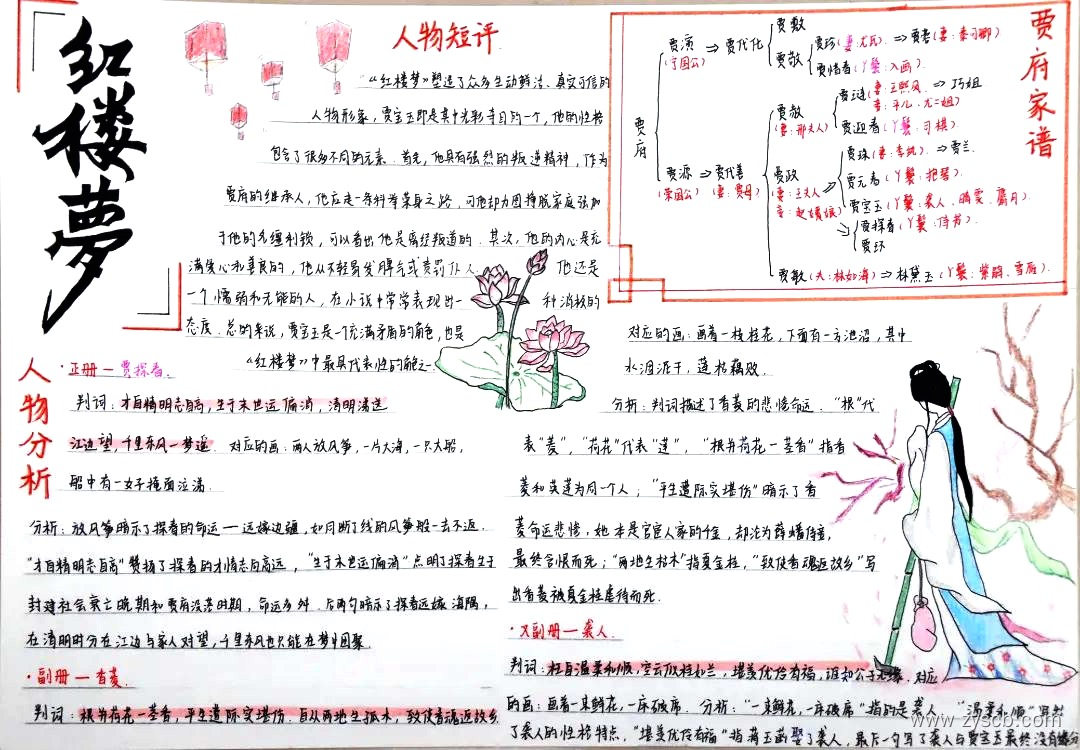 红楼梦
人物短评
《红楼梦》塑造了众多生动鲜活、真实可信的
人物形象，贾宝玉即是其中光彩夺目的一个，他的性格
包含了很多不同的元素。首先，他具有强烈的叛逆精神，作为
贾府的继承人，他应走一条科举荣身之路，可他却力图挣脱家庭强加
于他的名缰利锁，可以看出他是离经叛道的。其次，他的内心是充
满爱心和善良的，他从不轻易发脾气或责罚仆人。他还是
一个懦弱和无能的人，在小说中常常表现出一种消极的
态度。总的来说，贾宝玉是一个充满矛盾的角色，也是
《红楼梦》中最具代表性的角色之一。
贾府家谱
贾府
贾演 ⇒ 贾代化
(宁国公)
贾敷
贾敬
贾珍(妻:尤氏) ⇒ 贾蓉(妻:秦可卿)
贾惜春(丫鬟:入画)
贾源 ⇒ 贾代善
(荣国公) (妻:贾母)
贾赦
(妻:邢夫人)
贾琏(妻:王熙凤 ⇒ 巧姐
妾:平儿、尤二姐)
贾迎春(丫鬟:司棋)
贾政
(妻:王夫人
妾:赵姨娘)
贾珠(妻:李纨) ⇒ 贾兰
贾元春(丫鬟:抱琴)
贾宝玉(丫鬟:袭人、晴雯、麝月)
贾探春(丫鬟:侍书)
贾环
贾敏(夫:林如海) ⇒ 林黛玉(丫鬟:紫鹃、雪雁)
人物分析
·正册一贾探春.
判词：才自精明志自高，生于末世运偏消，清明涕送
江边望，千里东风一梦遥. 对应的画：两人放风筝，一片大海，一只大船，
船中有一女子掩面泣涕.
分析：放风筝暗示了探春的命运一远嫁边疆，如同断了线的风筝般一去不返.
"才自精明志自高"赞扬了探春的才情志向高远，"生于末世运偏消"点明了探春生于
封建社会衰亡晚期和贾府没落时期，命运多舛. 后两句暗示了探春远嫁海隅，
在清明时分在江边与家人对望，千里东风也只能在梦中团聚.
·副册一香菱.
判词：根并荷花一茎香，平生遭际实堪伤. 自从两地生孤木，致使香魂返故乡.
对应的画：画着一枝桂花，下面有一方池沼，其中
水涸泥干，莲枯藕败.
分析：判词描述了香菱的悲惨命运. "根"代
表"菱"，"荷花"代表"莲"，"根并荷花一茎香"指香
菱和英莲为同一个人；"平生遭际实堪伤"暗示了香
菱命运悲惨，她本是官宦人家的千金，却沦为薛蟠侍妾，
最终含恨而死；"两地生枯木"指夏金桂，"致使香魂返故乡"写
出香菱被夏金桂虐待而死.
·又副册一袭人.
判词：枉自温柔和顺，空云似桂如兰，堪羡优伶有福，谁知公子无缘. 对应
的画：画着一束鲜花，一床破席. 分析："一束鲜花，一床破席"指的是袭人，"温柔和顺"写出
了袭人的性格特点，"堪羡优伶有福"指蒋玉菡娶了袭人，最后一句写了袭人与贾宝玉最终没有缘分
www.zyscb.com